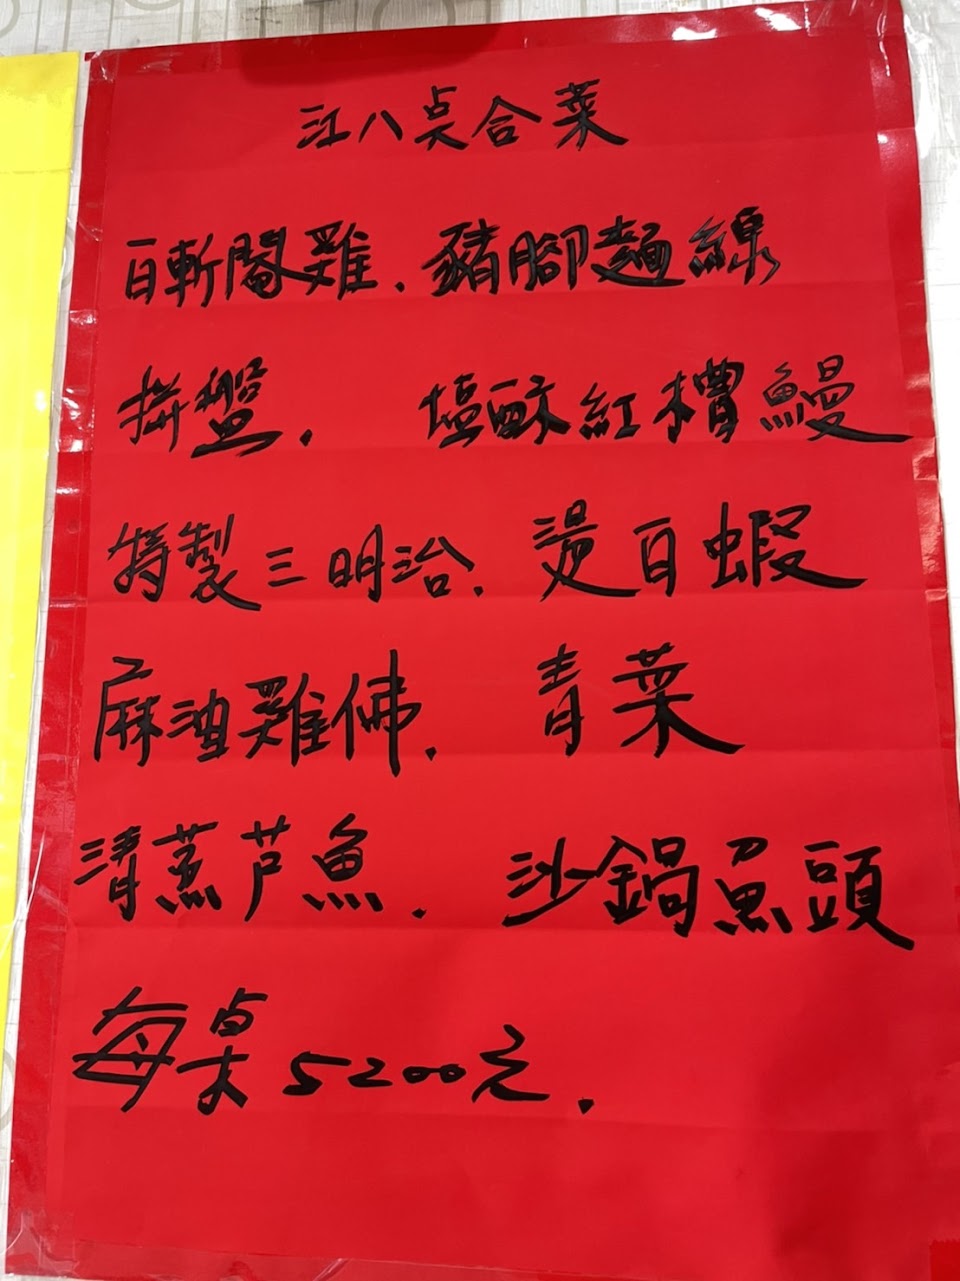 江八点合菜
白斬閹雞.豬腳麵線
拼盤.塩酥紅槽鰻
特製三明治.燙白蝦
麻油雞佛.青菜
清蒸芦魚.沙鍋魚頭
每桌5200元.